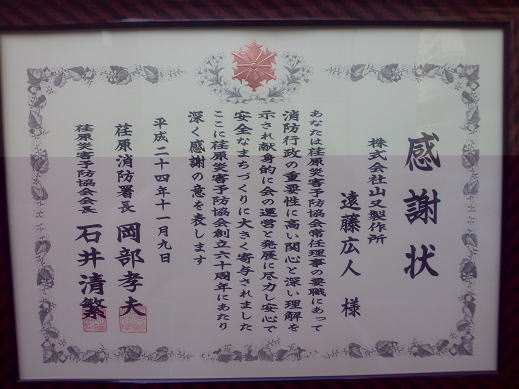 感謝状
株式会社山又製作所
遠藤広人 様
あなたは荏原災害予防協会常任理事の要職にあって
消防行政の重要性に高い関心と深い理解を
示され献身的に会の運営と発展に尽力し安心で
安全なまちづくりに大きく寄与されました
ここに荏原災害予防協会創立六十周年にあたり
深く感謝の意を表します
平成二十四年十一月九日
荏原消防署長 岡部孝夫
荏原災害予防協会会長 石井清繁